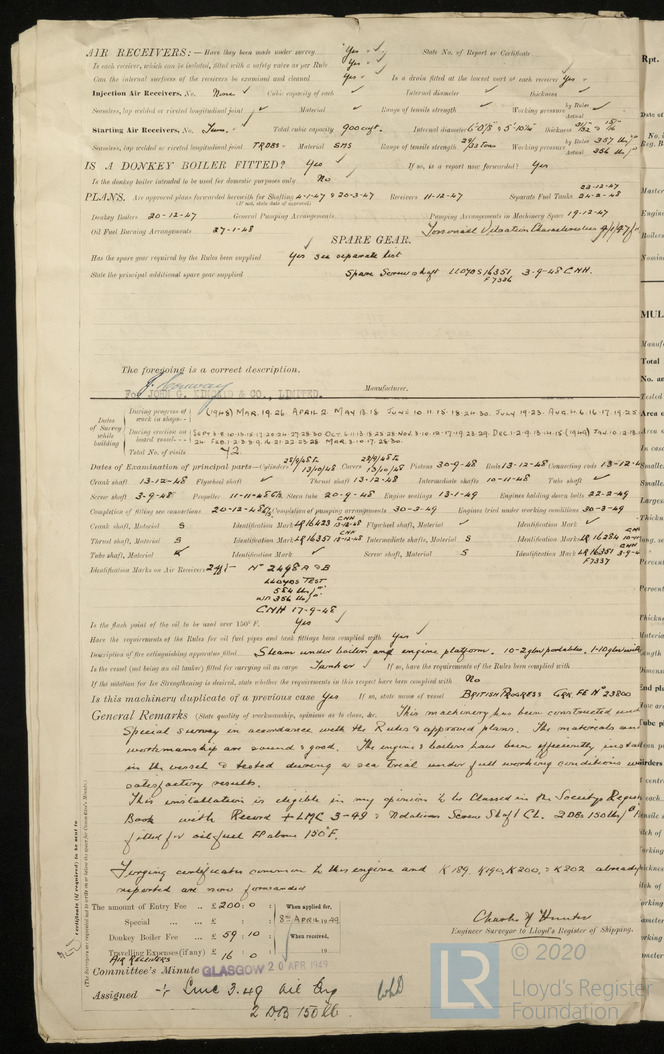 AIR RECEIVERS:— Have they been made under survey Yes ✓ State No. of Report or Certificate ✓
Is each receiver, which can be isolated, fitted with a safety valve as per Rule Yes ✓
Can the internal surfaces of the receivers be examined and cleaned Yes ✓ Is a drain fitted at the lowest part of each receiver Yes ✓
Injection Air Receivers, No. None ✓ Cubic capacity of each ✓ Internal diameter ✓ thickness ✓
Seamless, lap welded or riveted longitudinal joint ✓ Material ✓ Range of tensile strength ✓ Working pressure by Rules Actual
Starting Air Receivers, No. Two. Total cubic capacity 900 cuft. Internal diameter thickness
Seamless, lap welded or riveted longitudinal joint TRDBS Material SMS Range of tensile strength 29/33 tons Working pressure by Rules 357 Actual 356
IS A DONKEY BOILER FITTED? Yes ✓ If so, is a report now forwarded? Yes
Is the donkey boiler intended to be used for domestic purposes only No ✓
PLANS. Are approved plans forwarded herewith for Shafting 4-1-47 & 20-3-47 Receivers 11-12-47 Separate Fuel Tanks 23-12-47 24-2-48
(If not, state date of approval)
Donkey Boilers 20-12-47 General Pumping Arrangements Pumping Arrangements in Machinery Space 19-12-47
Oil Fuel Burning Arrangements 27-1-48 Torsional Vibration Characteristics 9/1/47
SPARE GEAR.
Has the spare gear required by the Rules been supplied Yes see separate list
State the principal additional spare gear supplied Spare Screwshaft LLOYDS 16351 3-9-48 CNH.
F7336
The foregoing is a correct description.
J. Conway
For JOHN G. KINCAID & CO., LIMITED. Manufacturer.
Dates of Survey while building
During progress of work in shops - - (1948) MAR. 19. 26. APRIL 2. MAY 13. 18. JUNE 10. 11. 15. 18. 24. 30. JULY 19. 23. AUG. 4. 6. 16. 17. 19. 25
During erection on board vessel - - SEPT 3. 8. 10. 13. 15. 17. 20. 24. 27. 28. 30 OCT. 6. 11. 13. 18. 25. 28 NOV. 3. 10. 12. 17. 19. 23. 29. DEC. 1. 2. 9. 13. 14. 15 (1949) JAN. 10. 12. 13.
24. FEB. 1. 2. 3. 8. 9. 16. 21. 22. 23. 28 MAR. 3. 10. 17. 28. 30.
Total No. of visits 72.
Dates of Examination of principal parts—Cylinders 28/9/48 & 13/10/48 Covers 28/9/48 & 13/10/48 Pistons 30-9-48 Rods 13-12-48 Connecting rods 13-12-48
Crank shaft 13-12-48 Flywheel shaft ✓ Thrust shaft 13-12-48 Intermediate shafts 10-11-48 Tube shaft ✓
Screw shaft 3-9-48 Propeller 11-11-48 Stern tube 20-9-48 Engine seatings 13-1-49 Engines holding down bolts 22-2-49
Completion of fitting sea connections 20-12-48 Completion of pumping arrangements 30-3-49 Engines tried under working conditions 30-3-49
Crank shaft, Material S Identification Mark LR 16423 CNH 13-12-48 Flywheel shaft, Material ✓ Identification Mark ✓
Thrust shaft, Material S Identification Mark LR 16357 CNH 13-12-48 Intermediate shafts, Material S Identification Marks LR 16284 10-11
Tube shaft, Material ✓ Identification Mark ✓ Screw shaft, Material S Identification Mark LR 16351 CNH 3-9-4
F7337
Identification Marks on Air Receivers 2 off:- No 2498 A & B
LLOYDS TEST
584 lbs/□"
WP 356 lbs/□"
CNH 17-9-48
Is the flash point of the oil to be used over 150° F. Yes ✓
Have the requirements of the Rules for oil fuel pipes and tank fittings been complied with Yes ✓
Description of fire extinguishing apparatus fitted Steam under boilers and engine platform. 10-2 glns portables, 1-10 gln
Is the vessel (not being an oil tanker) fitted for carrying oil as cargo Tanker ✓ If so, have the requirements of the Rules been complied with
If the notation for Ice Strengthening is desired, state whether the requirements in this respect have been complied with No
Is this machinery duplicate of a previous case Yes If so, state name of vessel BRITISH PROGRESS GRK FE No 23800
General Remarks (State quality of workmanship, opinions as to class, &c. This machinery has been constructed under
Special survey in accordance with the Rules & approved plans. The materials and
workmanship are sound & good. The engine & boilers have been efficiently install
in the vessel & tested during a sea trial under full working conditions with
satisfactory results.
This installation is eligible in my opinion to be Classed in the Society's Register
Book with Record + LMC 3-49 & Notations Screw Shaft CL. 2 DBs 150 lbs/□"
fitted for oil fuel FP above 150°F.
Forging certificates common to this engine and K189. K190, K200, & K202 already
reported are now forwarded
The amount of Entry Fee .. £ 200 : 0 : When applied for,
Special ... ... £ : : 8th APRIL 1949
Donkey Boiler Fee ... £ 59 : 10 : When received,
Travelling Expenses (if any) £ 16 : 0 : 19
AIR RECEIVERS
Charles N Hunter
Engineer Surveyor to Lloyd's Register of Shipping.
Committee's Minute GLASGOW 20 APR 1949
Assigned + LMC 3.49 Oil Eng
2 D.B. 150 lb.
© 2020
LR
Lloyd's Register
Foundation